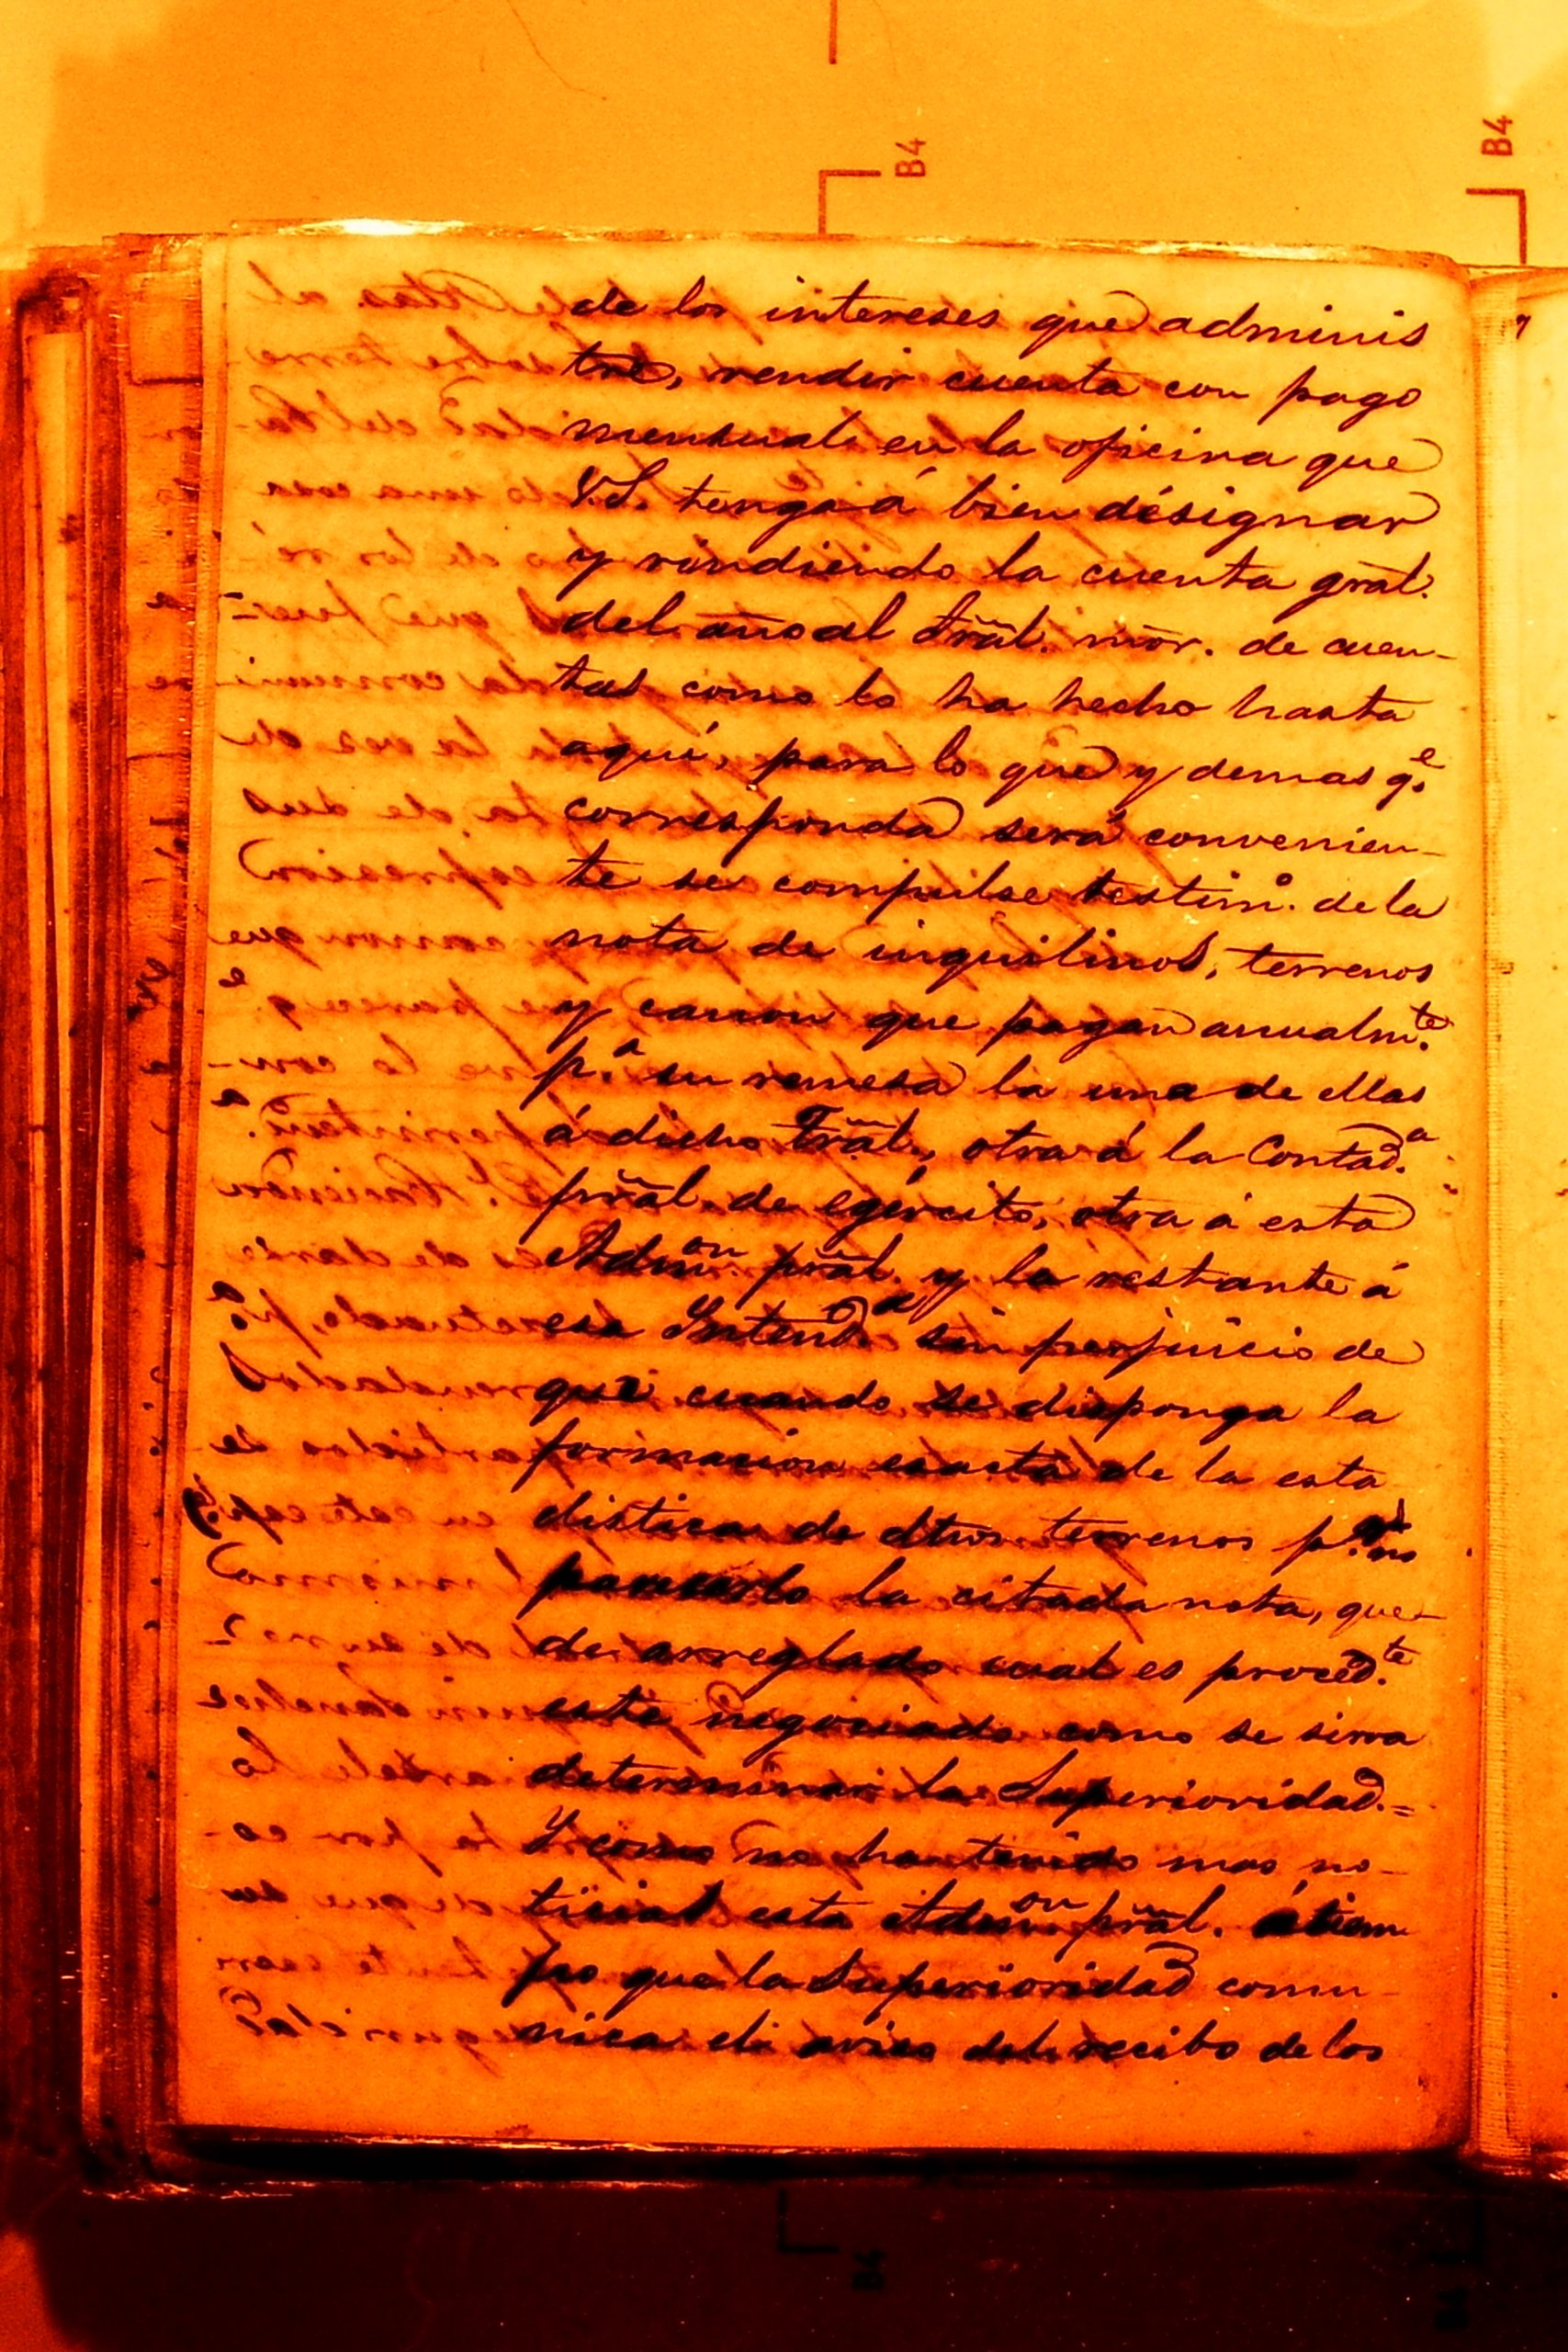 B4
B4
de los intereses que adminis
tre, rendir cuenta con pago
mensual en la oficina que
V.S. tenga á bien désignar
y rindiendo la cuenta gral.
del año al Trãl. mor. de cuen-
tas como lo ha hecho hasta
aquí, para lo que y demas q.e
corresponda será convenien-
te se compulse testim.o de la
nota de inquilinos, terrenos
y canon que pagan anualm.te
p.a su remesa la una de ellas
á dicho Trãl, otra á la Contad.a
prãl. de egército, otra á esta
Admon prãl. y la restante á
esa Intend.a sin perjuicio de
que cuando se disponga la
formacion esacta de la esta
distica de dhos terrenos
la citada nota, que-
de arreglado cual es proced.te
este negociado como se sirva
determinar la Superioridad.=
Y como no ha tenido mas no-
ticias esta Admon prãl. á tiem
po que la Superioridad comu-
nica el aviso del recibo de los
B4